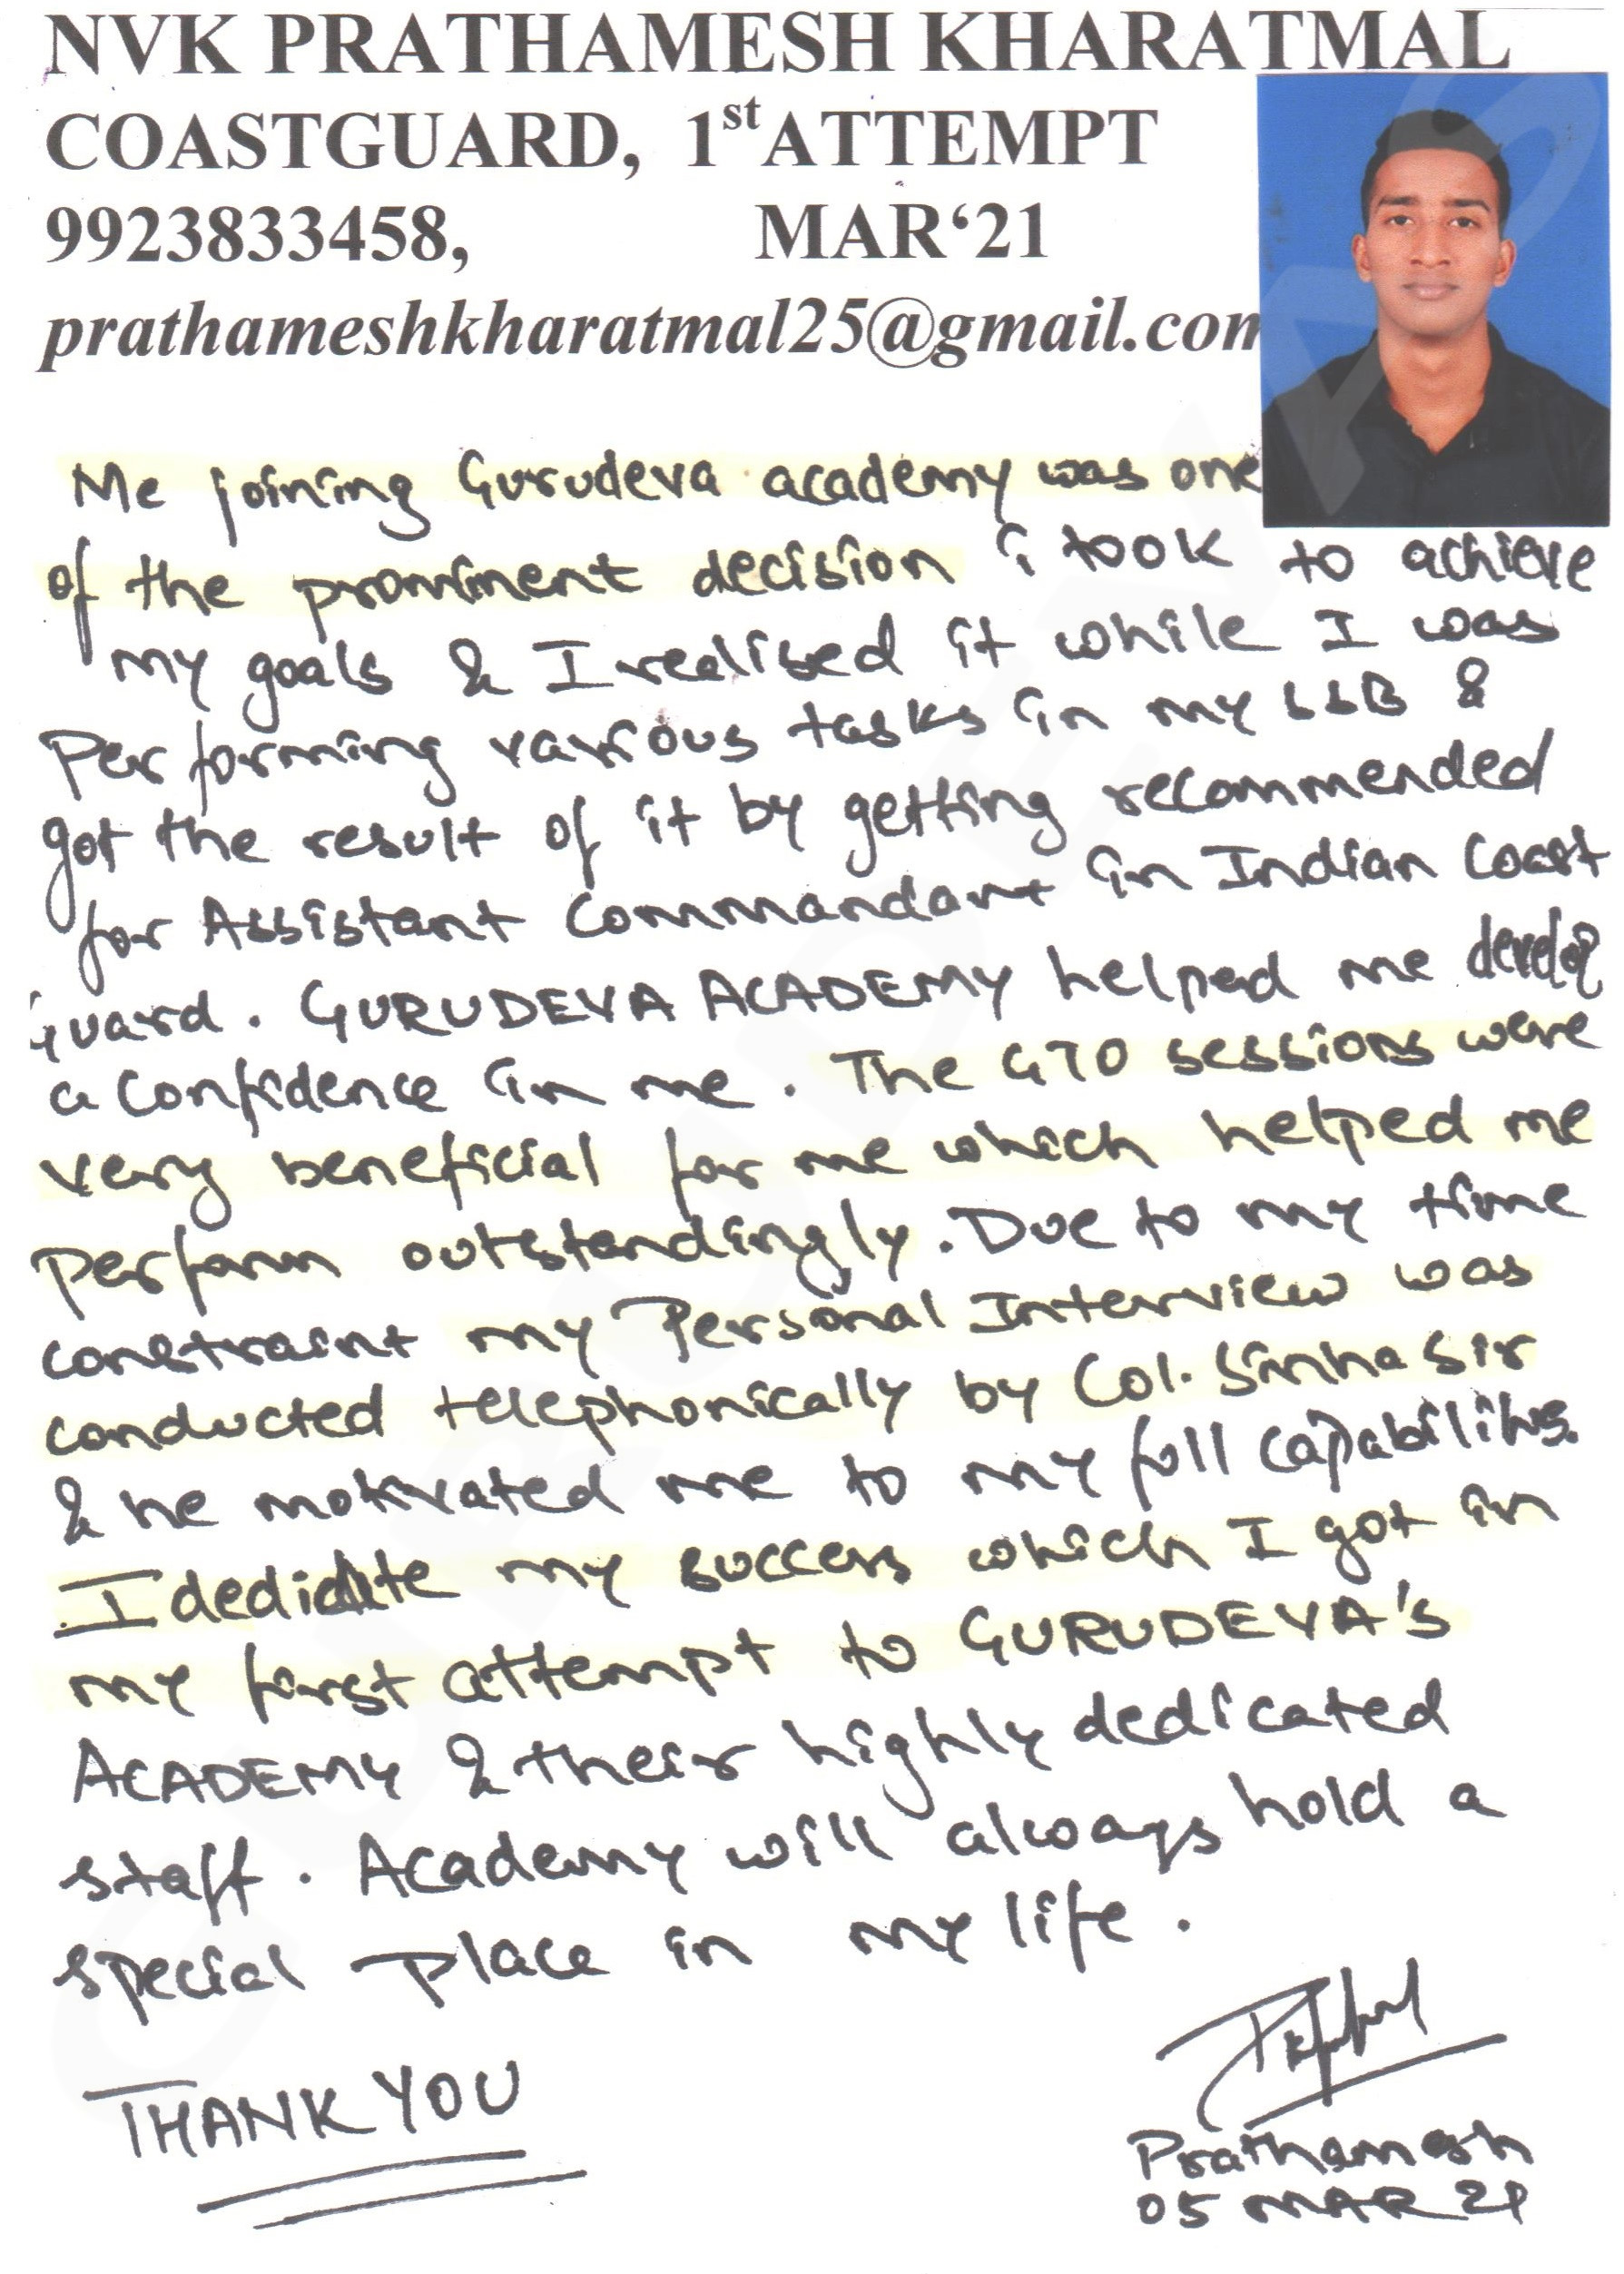 NVK PRATHAMESH KHARATMAL
COASTGUARD, 1st ATTEMPT
9923833458, MAR‘21
prathameshkharatmal25@gmail.com
Me joining Gurudeva academy was one
of the prominent decision i took to achieve
my goals & I realised it while I was
Performing various tasks in my SSB &
got the result of it by getting recommended
for Assistant Commandant in Indian Coast
Guard. GURUDEVA ACADEMY helped me develop
a Confidence in me. The GTO sessions were
very beneficial for me which helped me
perform outstandingly. Due to my time
constraint my Personal Interview was
conducted telephonically by Col. Sinha Sir
& he motivated me to my full capabilities.
I dedicate my success which I got in
my first attempt to GURUDEVA's
ACADEMY & their highly dedicated
staff. Academy will always hold a
special place in my life.
THANK YOU
Prathamesh
05 MAR 21